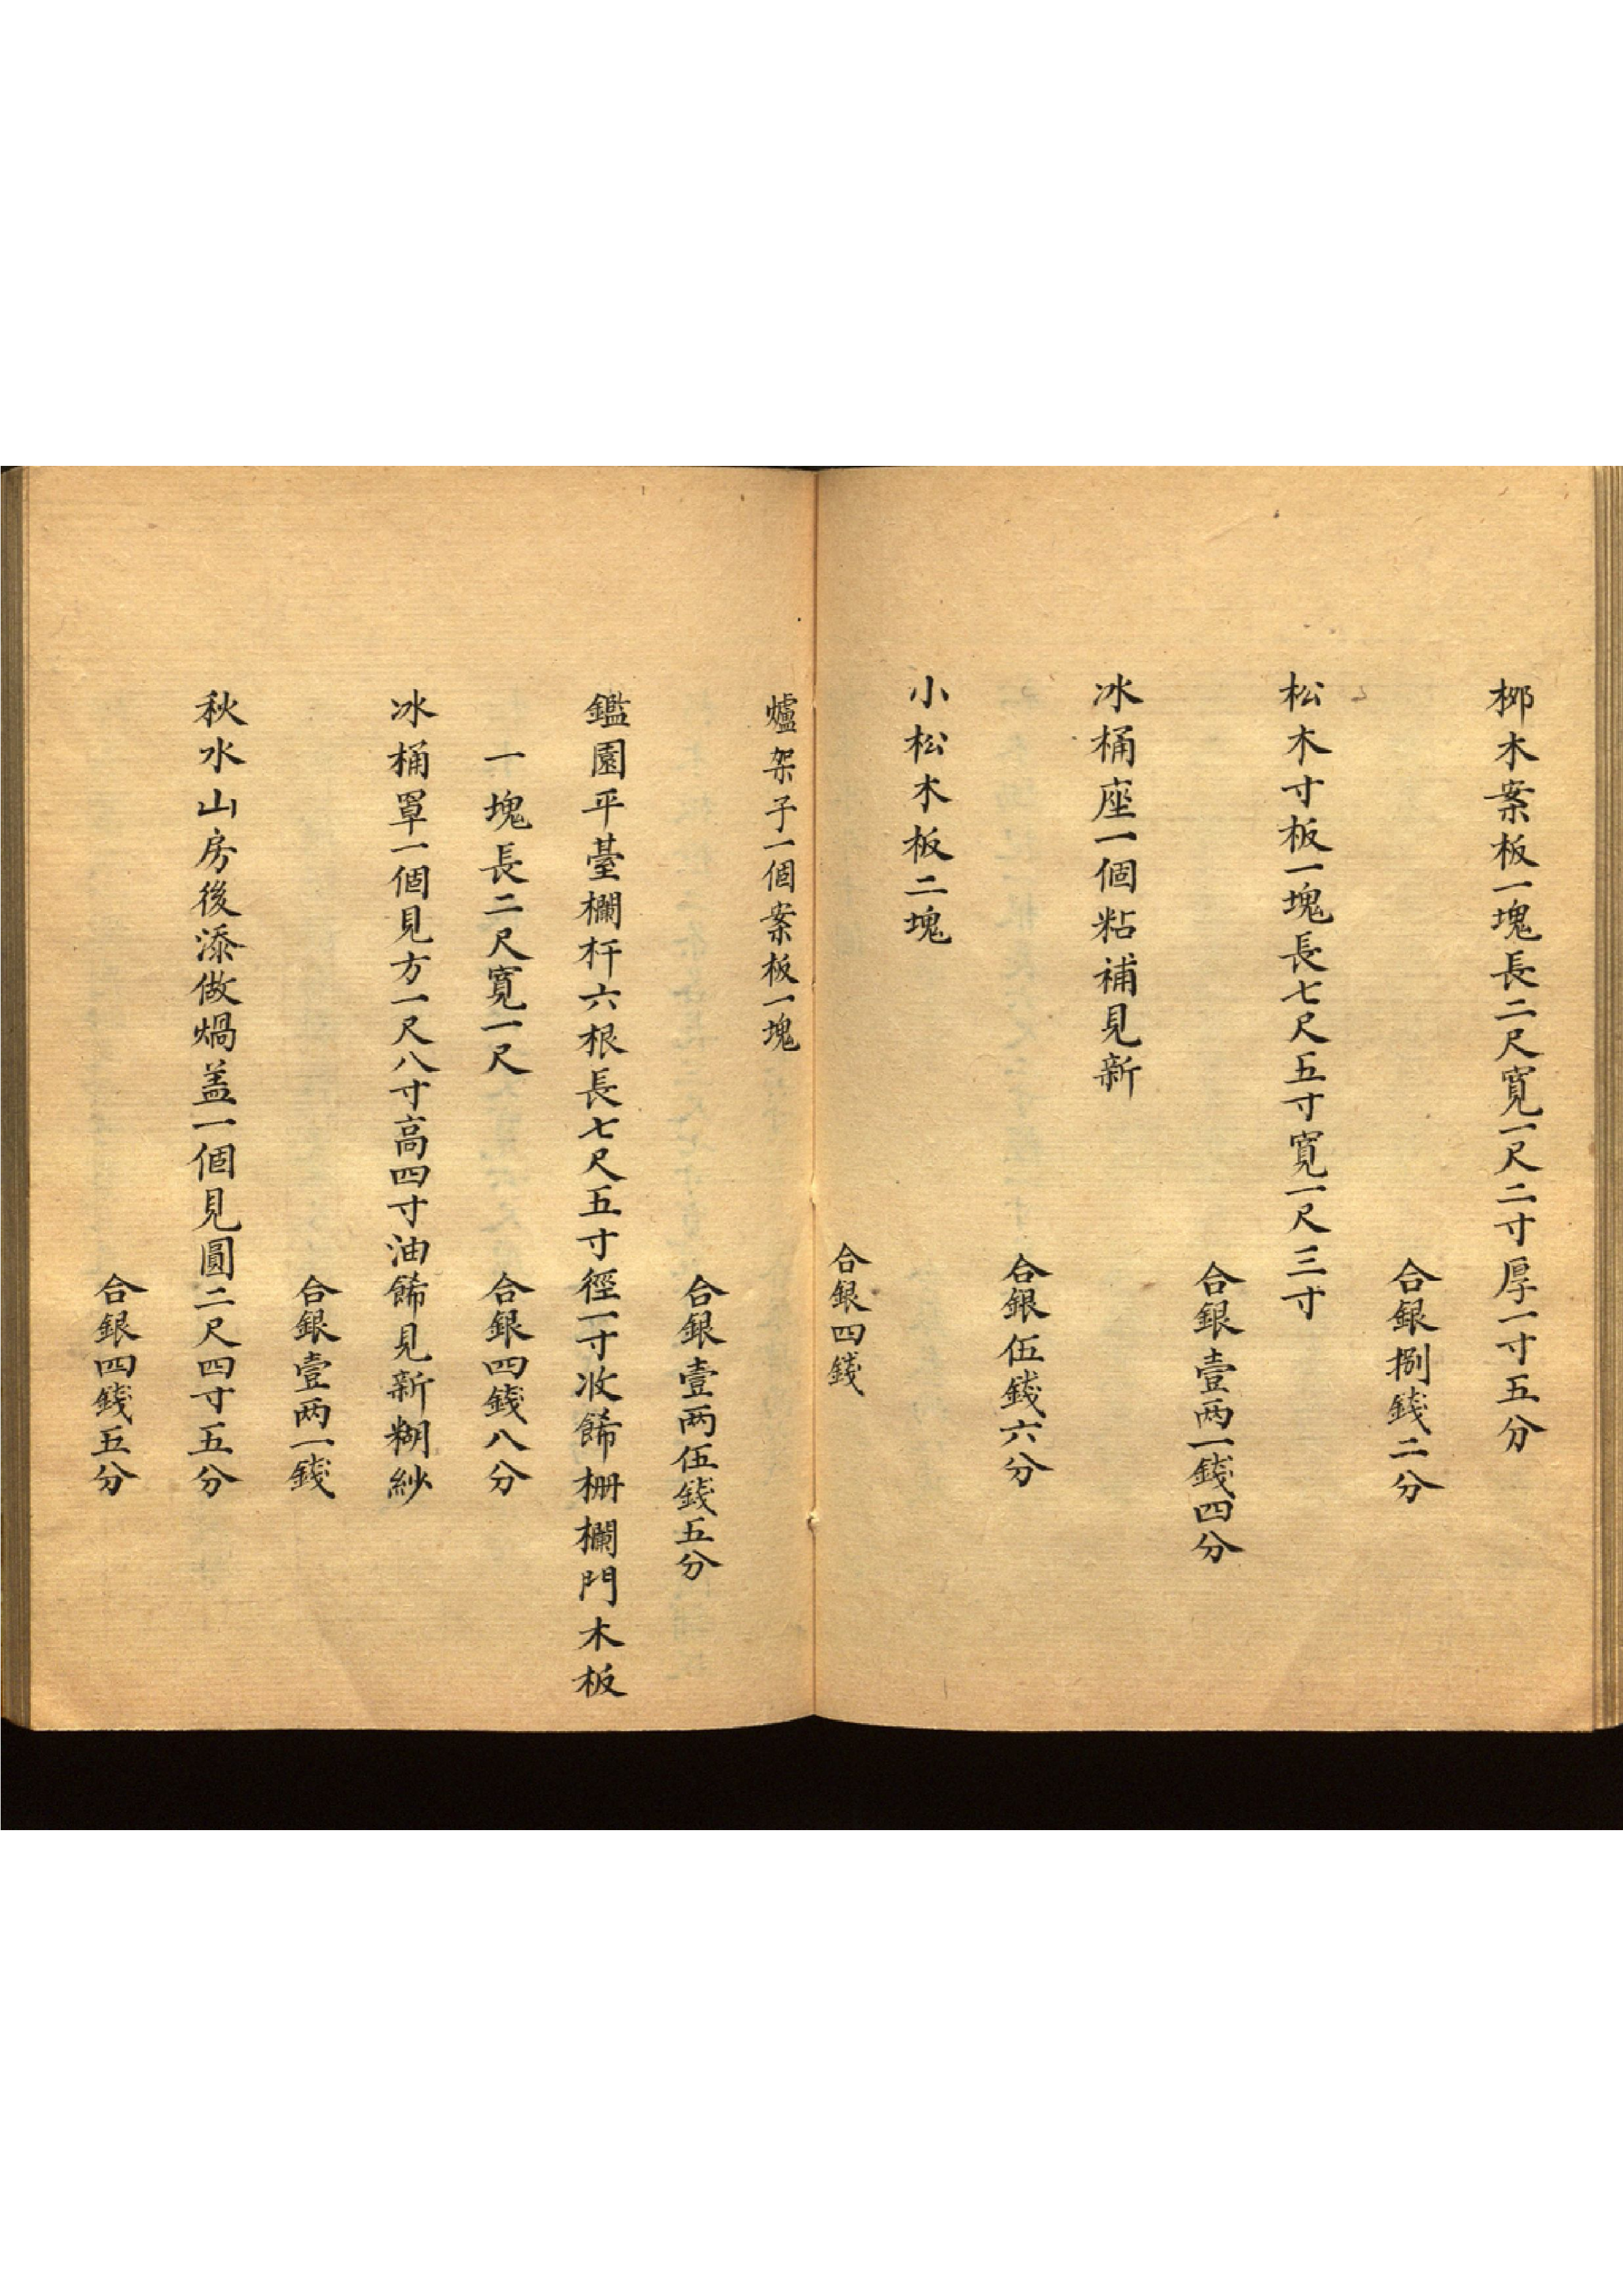 桞木案板一塊長二尺寬一尺二寸厚一寸五分
合銀捌錢二分
松木寸板一塊長七尺五寸寬一尺三寸
合銀壹两一錢四分
冰桶座一個粘補見新
合銀伍錢六分
小松木板二塊
合銀四錢
爐架子一個案板一塊
合銀壹两伍錢五分
鑑園平臺欄杆六根長七尺五寸徑一寸收餙柵欄門木板
一塊長二尺寬一尺
合銀四錢八分
冰桶罩一個見方一尺八寸高四寸油餙見新糊紗
合銀壹两一錢
秋水山房後添做煱盖一個見圓二尺四寸五分
合銀四錢五分